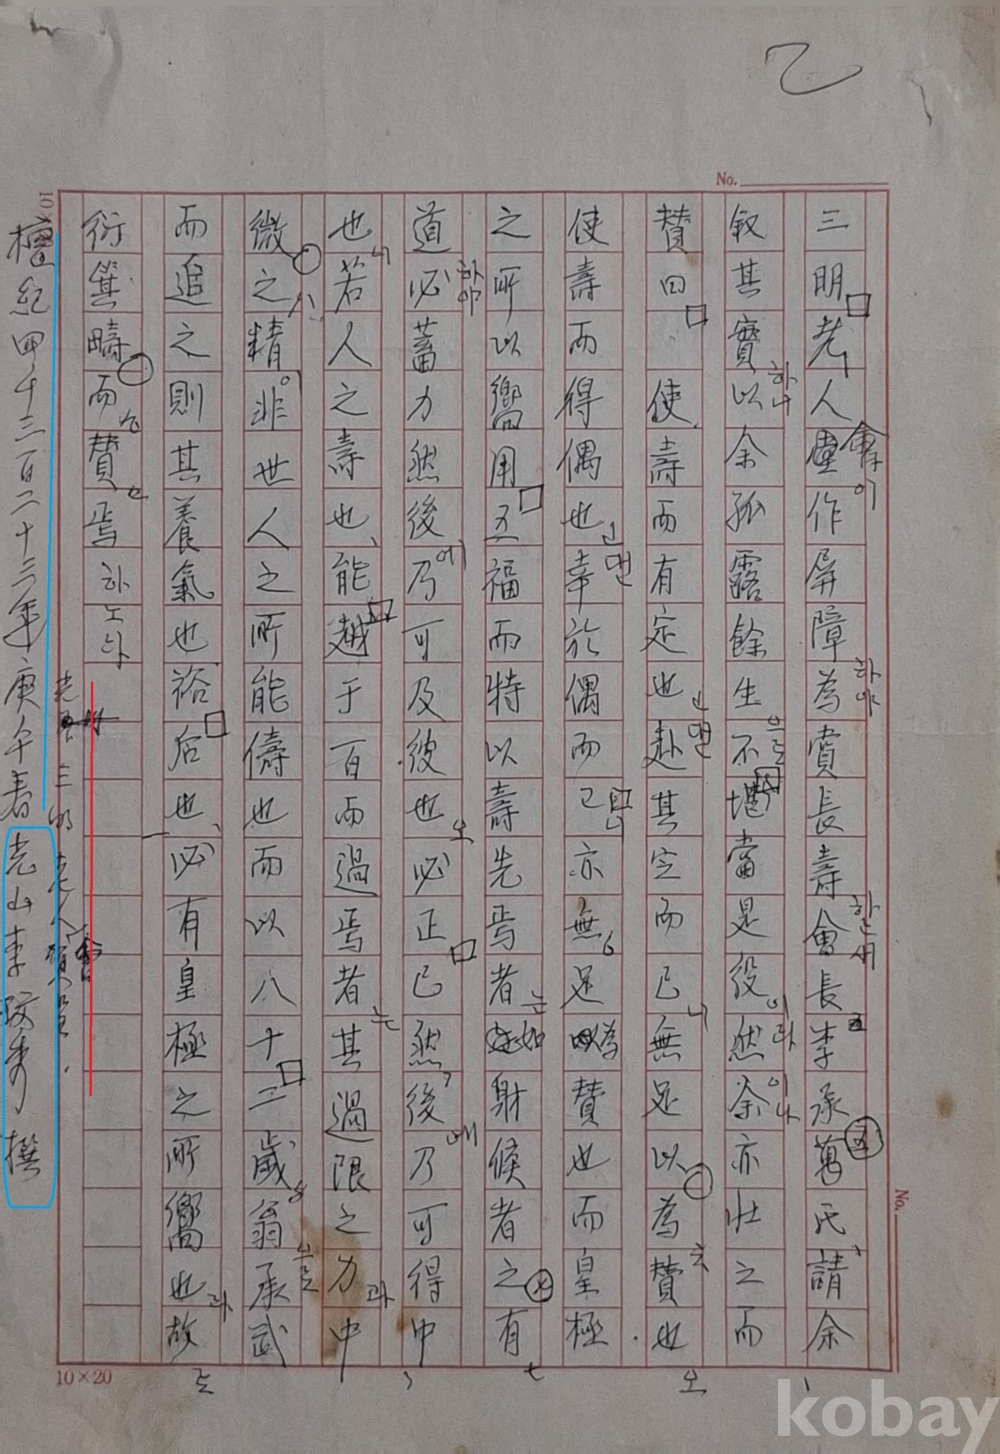 乙
No.
三明老人會廛作屏障為賞長壽會長李承萬氏請余
叙其實以余孤露餘生不堪當是役然余亦壯之而
贊曰 使壽而有定也赴其定而已無足以為贊也
使壽而得偶也幸於偶而已亦無足以為贊也而皇極
之所以嚮用五福而特以壽先焉者如射候者之有
道必蓄力然後乃可及彼也必正己然後乃可得中
也若人之壽也能越于百而過焉者其過限之力中
微之精非世人之所能儔也而以八十二歲翁承武
而追之則其養氣也裕后也必有皇極之所嚮也故
衍箕疇而贊焉 하노라
老 三明老人會贊
檀紀四千三百二十三年庚午春 老山李 秀 撰
10×20
10×20
No.
kobay